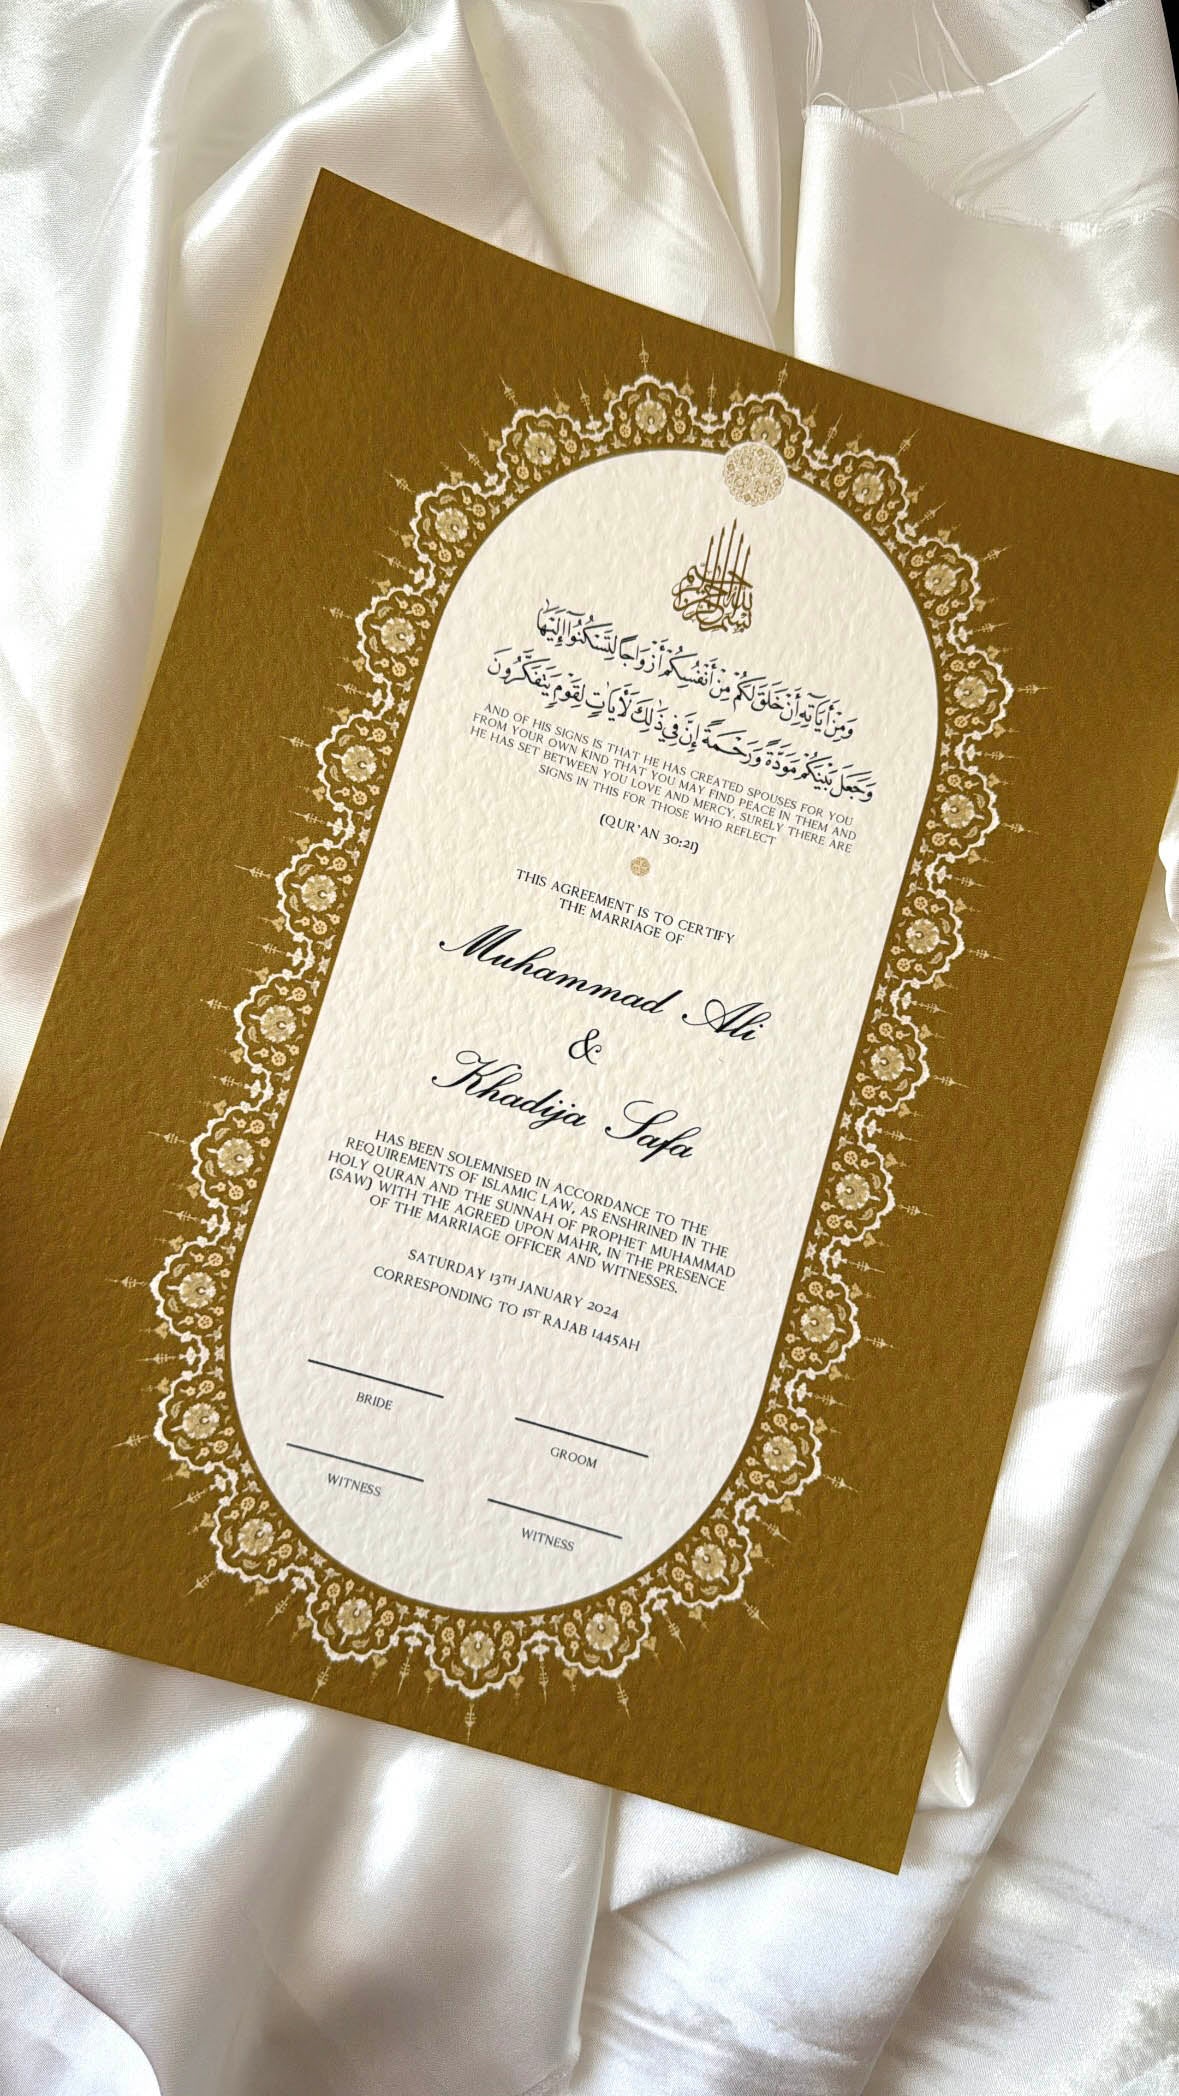 بسم الله الرحمن الرحيم
وَمِنْ أَيَاتِهِ أَنْ خَلَقَ لَكُمْ مِنْ أَنْفُسِكُمْ أَزْوَاجًا لِتَسْكُنُوا إِلَيْهَا
وَجَعَلَ بَيْنَكُمْ مَوَدَّةً وَرَحْمَةً إِنَّ فِي ذَٰلِكَ لَأَيَاتٍ لِقَوْمٍ يَتَفَكَّرُونَ
AND OF HIS SIGNS IS THAT HE HAS CREATED SPOUSES FOR YOU
FROM YOUR OWN KIND THAT YOU MAY FIND PEACE IN THEM AND
HE HAS SET BETWEEN YOU LOVE AND MERCY. SURELY THERE ARE
SIGNS IN THIS FOR THOSE WHO REFLECT
(QUR'AN 30:21)
THIS AGREEMENT IS TO CERTIFY
THE MARRIAGE OF
Muhammad Ali
&
Khadija Safa
HAS BEEN SOLEMNISED IN ACCORDANCE TO THE
REQUIREMENTS OF ISLAMIC LAW, AS ENSHRINED IN THE
HOLY QURAN AND THE SUNNAH OF PROPHET MUHAMMAD
(SAW) WITH THE AGREED UPON MAHR, IN THE PRESENCE
OF THE MARRIAGE OFFICER AND WITNESSES.
SATURDAY 13TH JANUARY 2024
CORRESPONDING TO 1ST RAJAB 1445AH
BRIDE
GROOM
WITNESS
WITNESS